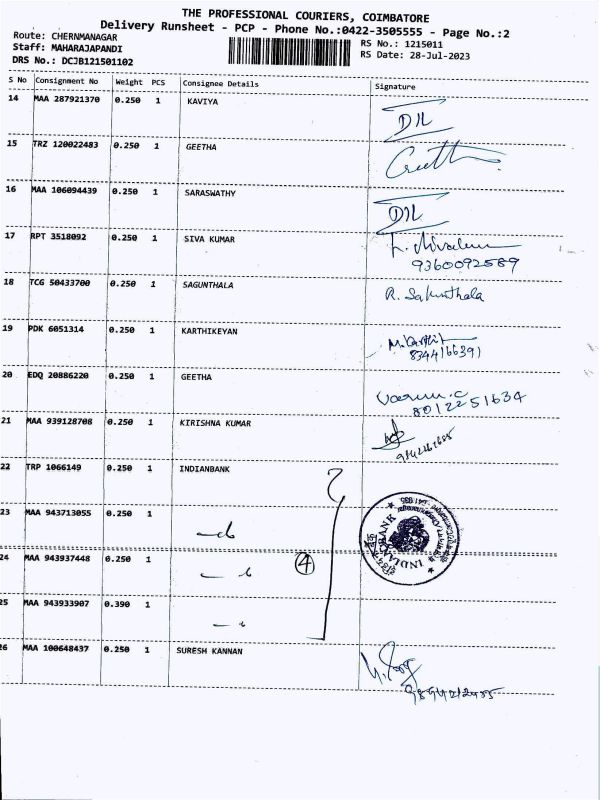 THE PROFESSIONAL COURIERS, COIMBATORE
Delivery Runsheet - PCP - Phone No.:0422-3505555 - Page No.:2
Route: CHERNMANAGAR
Staff: MAHARAJAPANDI
DRS No.: DCJB121501102
RS No.: 1215011
RS Date: 28-Jul-2023
S No Consignment No Weight PCS Consignee Details Signature
14 MAA 287921370 0.250 1 KAVIYA
DIL
15 TRZ 120022483 0.250 1 GEETHA
Geetha
16 MAA 106094439 0.250 1 SARASWATHY
DIL
17 RPT 3518092 0.250 1 SIVA KUMAR
9360092589
18 TCG 50433700 0.250 1 SAGUNTHALA
R. Sakunthala
19 PDK 6051314 0.250 1 KARTHIKEYAN
8344166391
20 EDQ 20886220 0.250 1 GEETHA
Varun.C
8012251634
21 MAA 939128708 0.250 1 KIRISHNA KUMAR
22 TRP 1066149 0.250 1 INDIANBANK
23 MAA 943713055 0.250 1
24 MAA 943937448 0.250 1
4
INDIAN BANK
25 MAA 943933907 0.390 1
26 MAA 100648437 0.250 1 SURESH KANNAN